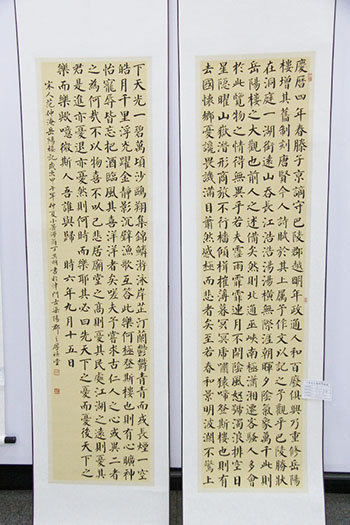 慶曆四年春滕子京謫守巴陵郡越明年政通人和百廢俱興乃重修岳陽
樓增其舊制刻唐賢今人詩賦於其上屬予作文以記之予觀夫巴陵勝狀
在洞庭一湖銜遠山吞長江浩浩湯湯橫無際涯朝暉夕陰氣象萬千此則
岳陽樓之大觀也前人之述備矣然則北通巫峽南極瀟湘遷客騷人多會
於此覽物之情得無異乎若夫霪雨霏霏連月不開陰風怒號濁浪排空日
星隱曜山嶽潛形商旅不行檣傾楫摧薄暮冥冥虎嘯猿啼登斯樓也則有
去國懷鄉憂讒畏譏滿目蕭然感極而悲者矣至若春和景明波瀾不驚上
下天光一碧萬頃沙鷗翔集錦鱗游泳岸芷汀蘭鬱鬱青青而或長煙一空
皓月千里浮光躍金靜影沉璧漁歌互答此樂何極登斯樓也則有心曠神
怡寵辱皆忘把酒臨風其喜洋洋者矣嗟夫予嘗求古仁人之心或異二者
之為何哉不以物喜不以己悲居廟堂之高則憂其民處江湖之遠則憂其
君是進亦憂退亦憂然則何時而樂耶其必曰先天下之憂而憂後天下之
樂而樂歟噫微斯人吾誰與歸 時六年九月十五日
宋人范仲淹岳陽樓記 歲次甲午年仲夏